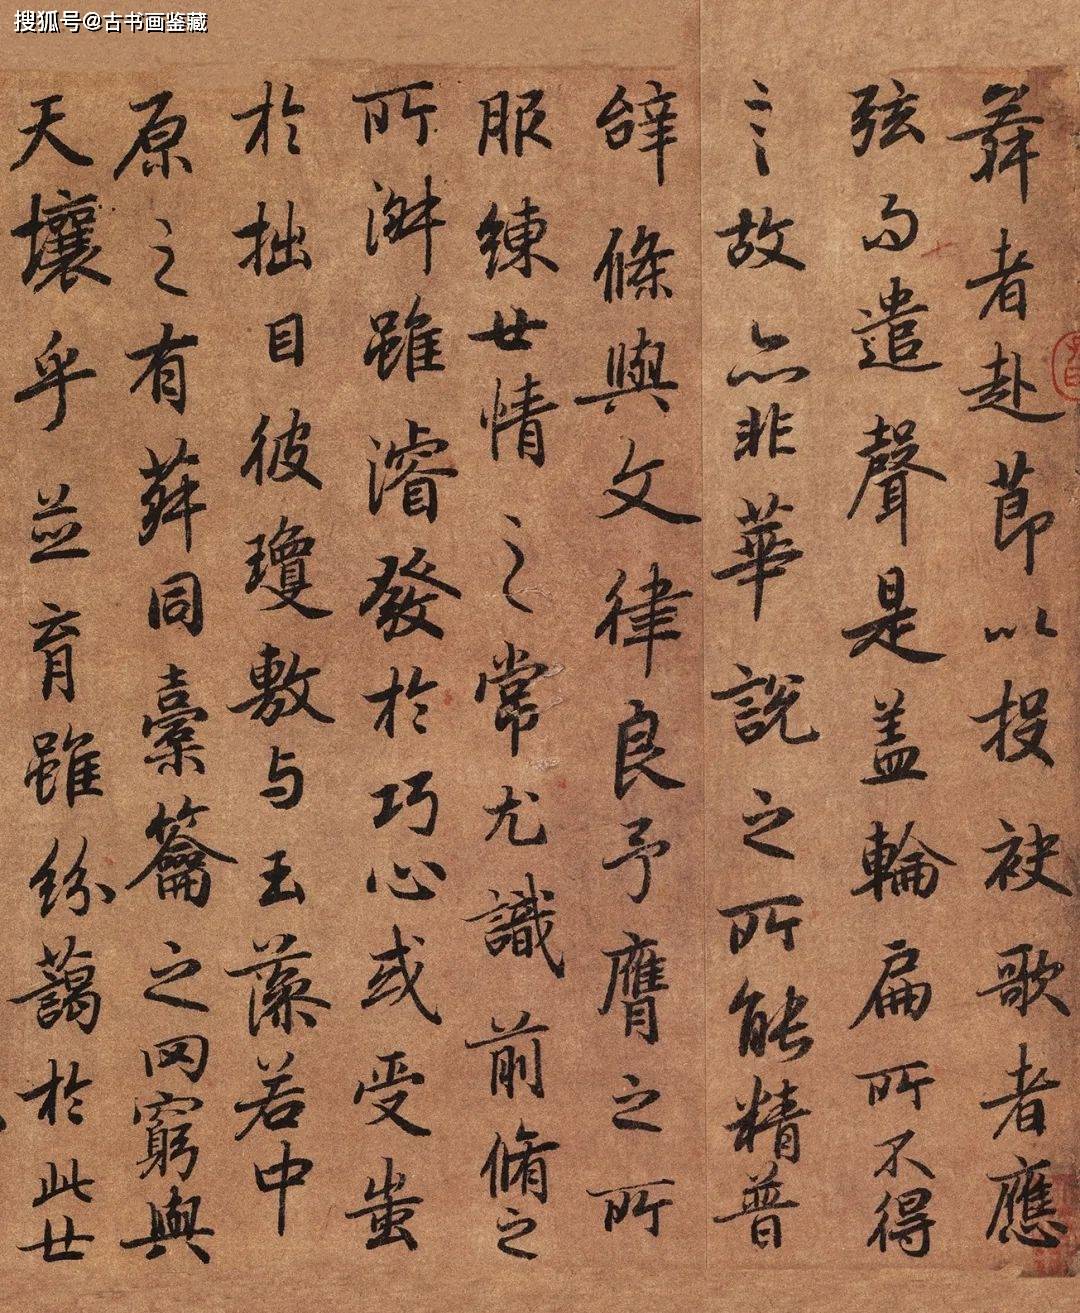 搜狐号@古书画鉴藏
舞者赴節以投袂歌者應
弦而遣聲是盖輪扁所不得
言故亦非華說之所能精普
辭條與文律良予膺之所
服練世情之常尤識前脩之
所淑雖濬發於巧心或受蚩
於拙目彼瓊敷与玉藻若中
原之有菽同橐籥之罔窮與
天壤乎並育雖紛藹於此世